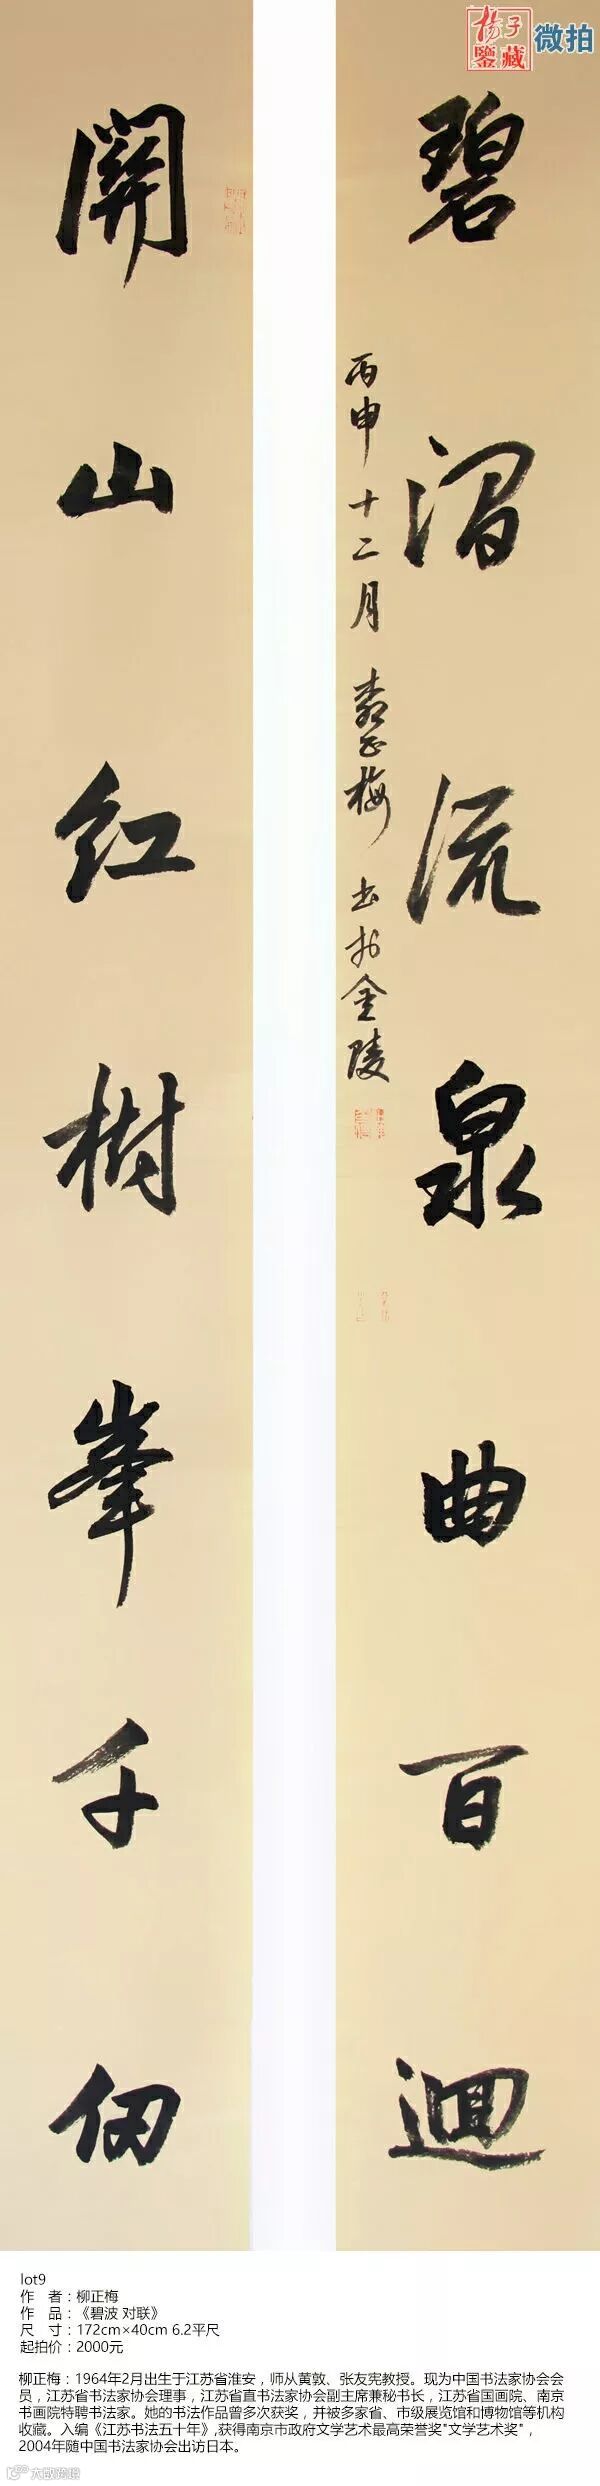 杨子
鉴藏
微拍
碧涧流泉曲百迴
關山红樹峯千仞
丙申十二月
正梅书於金陵
lot9
作 者：柳正梅
作 品：《碧波 对联》
尺 寸：172cm×40cm 6.2平尺
起拍价：2000元
柳正梅：1964年2月出生于江苏省淮安，师从黄敦、张友宪教授。现为中国书法家协会会
员，江苏省书法家协会理事，江苏省直书法家协会副主席兼秘书长，江苏省国画院、南京
书画院特聘书法家。她的书法作品曾多次获奖，并被多家省、市级展览馆和博物馆等机构
收藏。入编《江苏书法五十年》,获得南京市政府文学艺术最高荣誉奖"文学艺术奖"，
2004年随中国书法家协会出访日本。
大欧跨境